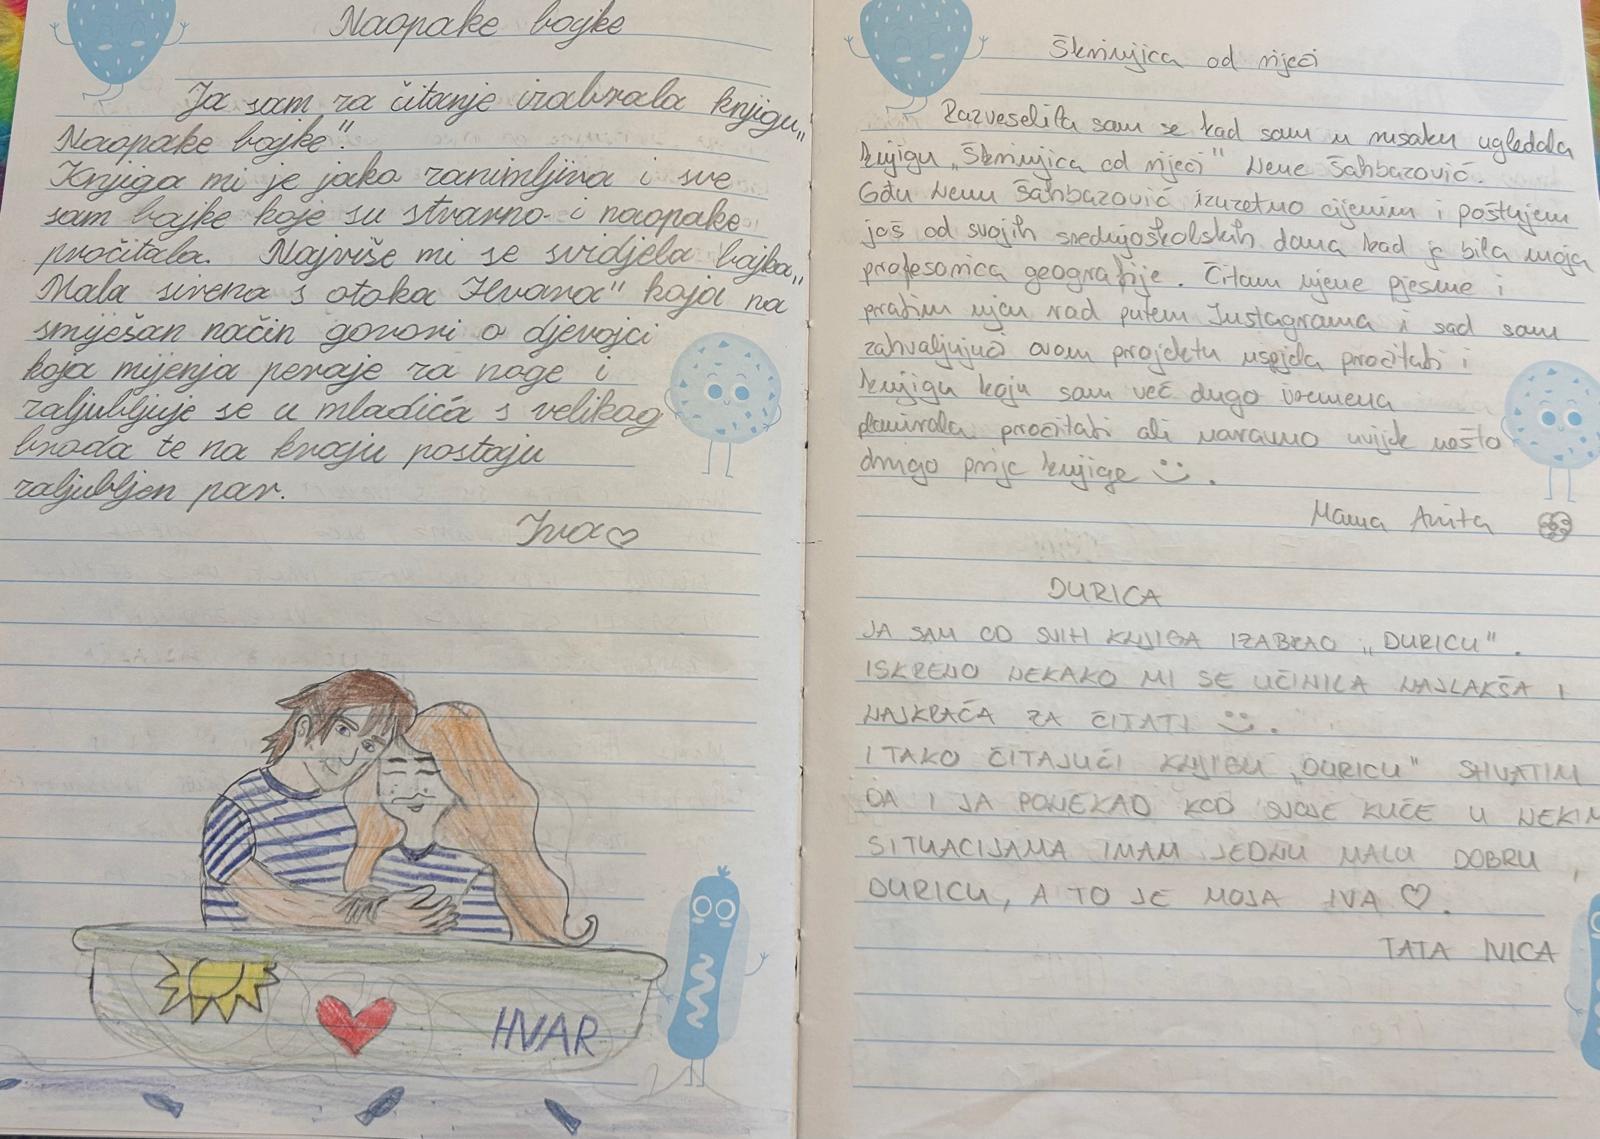 Naopake bajke
Ja sam za čitanje izabrala knjigu „
Naopake bajke".
Knjiga mi je jako zanimljiva i sve
sam bajke koje su stvarno i naopake
pročitala. Najviše mi se svidjela bajka „
Mala sirena s otoka Hvara" koja na
smiješan način govori o djevojci
koja mijenja peraje za noge i
zaljubljuje se u mladića s velikog
broda te na kraju postaju
zaljubljen par.
Iva ♡
HVAR
Škrinjica od riječi
Razveselila sam se kad sam u rusaku ugledala
knjigu „Škrinjica od riječi" Nene Šahbazović.
Gđu Nenu Šahbazović izuzetno cijenim i poštujem
još od svojih srednjoškolskih dana kad je bila moja
profesorica geografije. Čitam njene pjesme i
pratim njen rad putem Instagrama i sad sam
zahvaljujući ovom projektu uspjela pročitati i
knjigu koju sam već dugo vremena
planirala pročitati ali naravno uvijek nešto
drugo prije knjige :).
Mama Anita
DURICA
JA SAM OD SVIH KNJIGA IZABRAO „DURICU".
ISKRENO NEKAKO MI SE UČINILA NAJLAKŠA I
NAJKRAĆA ZA ČITATI :).
I TAKO ČITAJUĆI KNJIGU „DURICU" SHVATIM
DA I JA PONEKAD KOD SVOJE KUĆE U NEKIM
SITUACIJAMA IMAM JEDNU MALU DOBRU
DURICU, A TO JE MOJA IVA ♡.
TATA IVICA